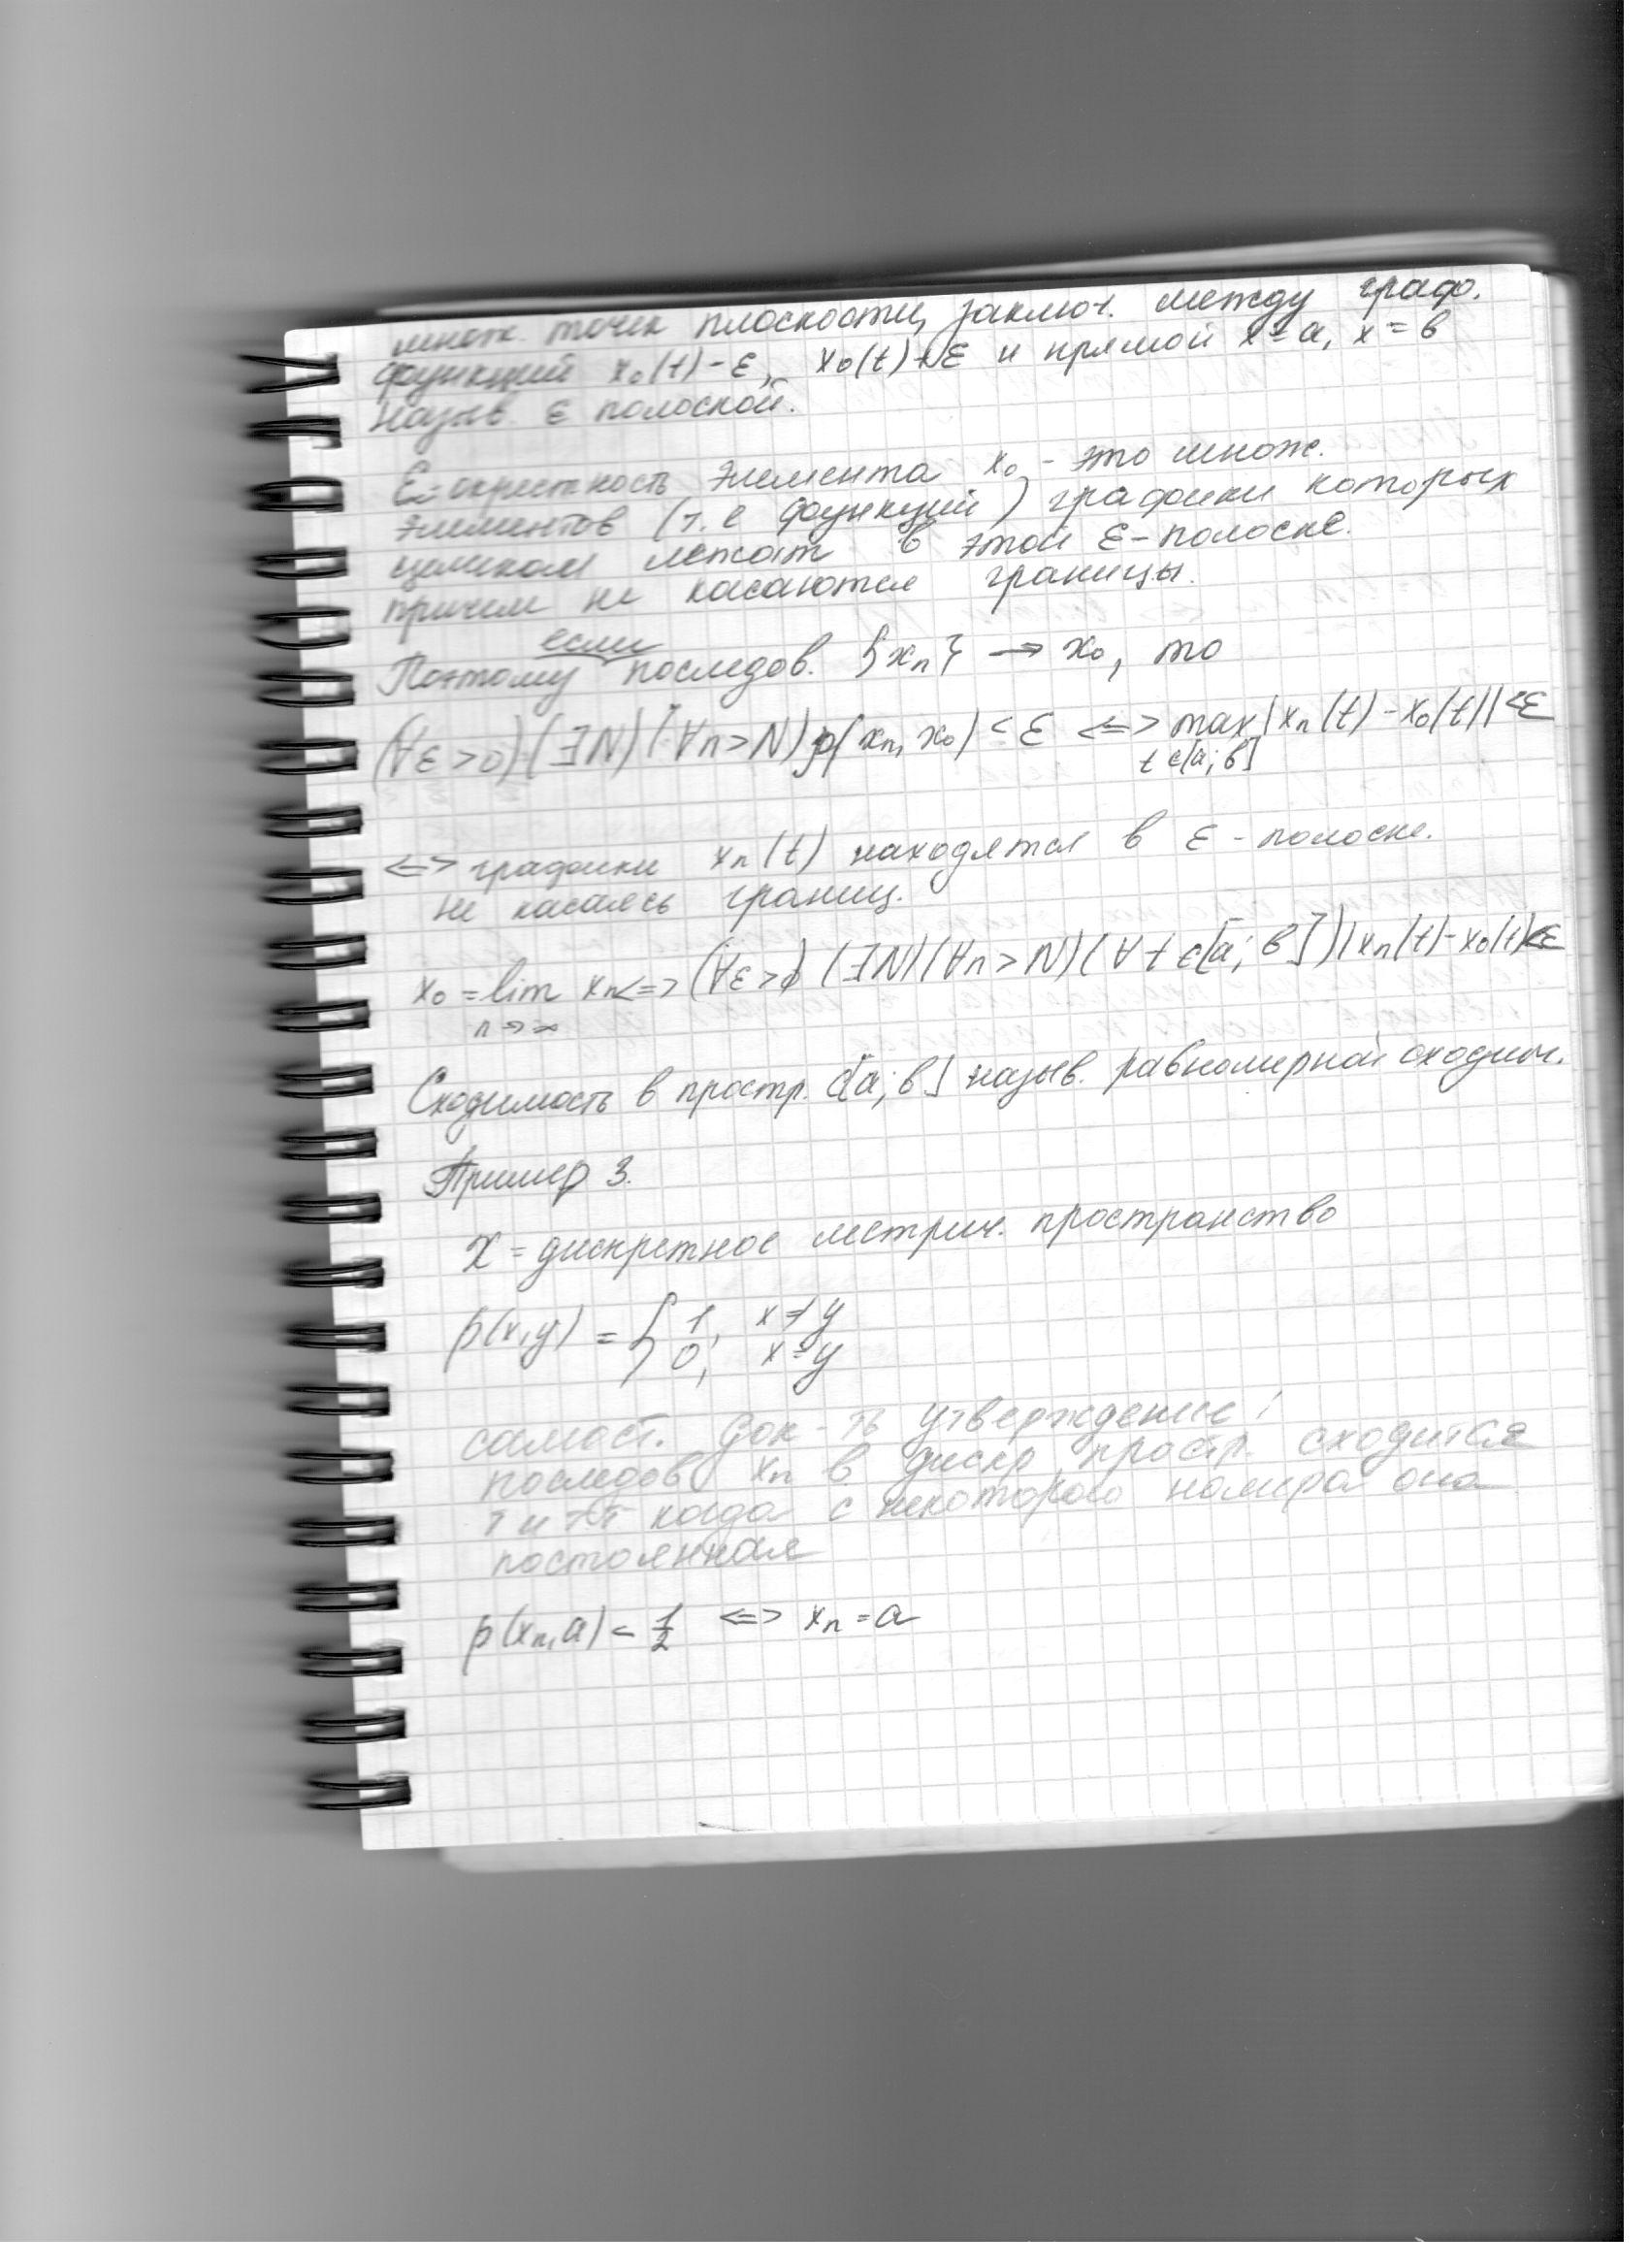 множ. точек плоскости, заключ. между граф.
функций x₀(t)-ε, x₀(t)+ε и прямой x=a, x=в
назыв. ε полоской.
ε-окрестность элемента x₀ - это множ.
элементов (т.е функций) графики которых
целиком лежат в этой ε-полоске.
причем не касаются границы.
если
Поэтому последов. {xₙ} → x₀, то
(∀ε>0)(∃N)(∀n>N) ρ(xₙ, x₀) < ε <=> max |xₙ(t) - x₀(t)| < ε
t∈[a; в]
<=> графики xₙ(t) находятся в ε - полоске.
не касаясь границ.
x₀ = lim xₙ <=> (∀ε>0) (∃N)(∀n>N)(∀t∈[a; в])|xₙ(t) - x₀(t)|<ε
n→∞
Сходимость в простр. C[a; в] назыв. равномерной сходим.
Пример 3.
X = дискретное метрич. пространство
ρ(x,y) = { 1, x≠y
0, x=y
самост. док-ть утверждение!
последов xₙ в дискр простр. сходится
т и тт когда с некоторого номера она
постоянная
ρ(xₙ, a) < 1/2 <=> xₙ = a